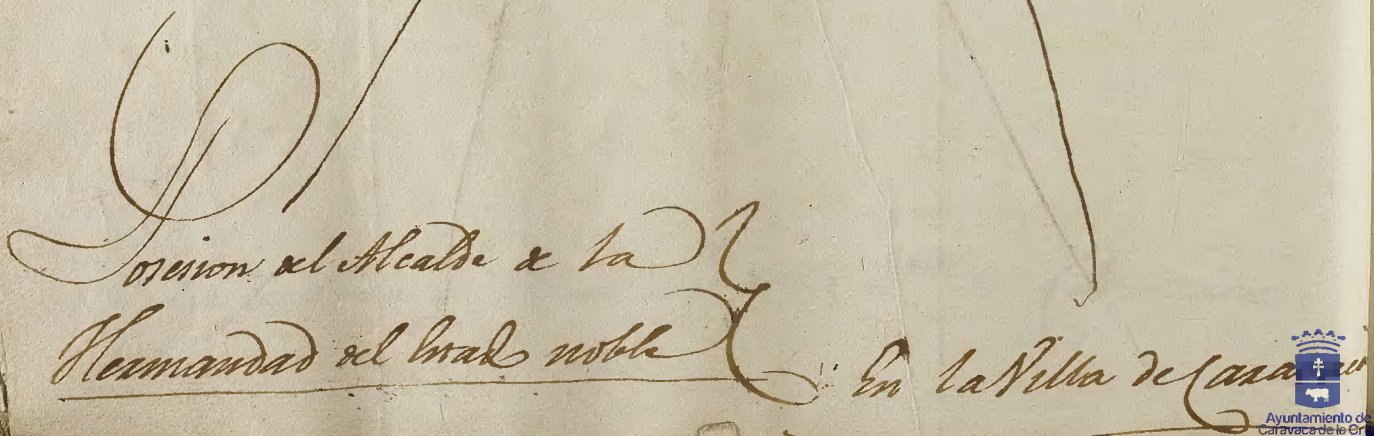 Posesion del Alcalde de la
Hermandad del Estad.º noble
En la Villa de Carava
Ayuntamiento de
Caravaca de la Cr